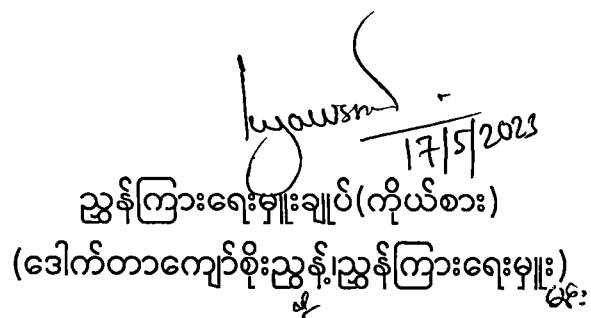 17/5/2023
ညွှန်ကြားရေးမှူးချုပ်(ကိုယ်စား)
(ဒေါက်တာကျော်စိုးညွန့်၊ညွှန်ကြားရေးမှူး)